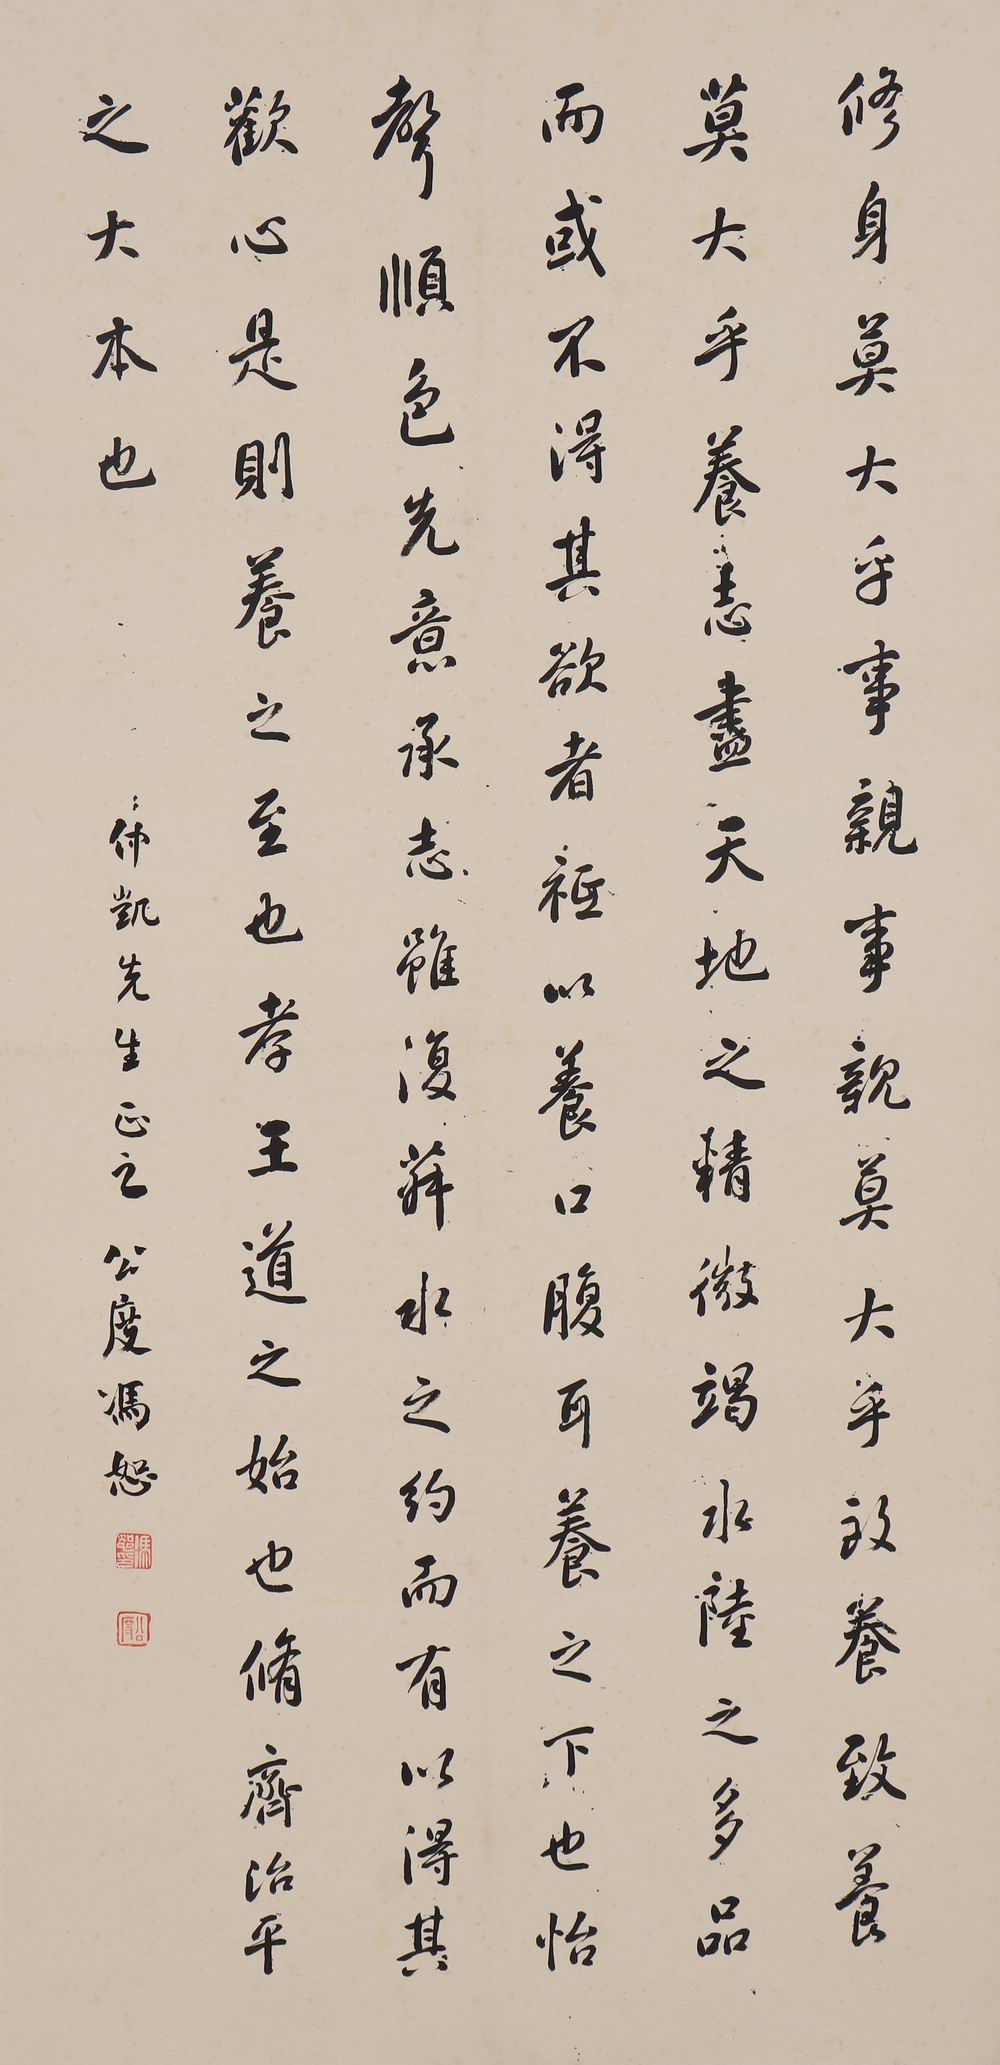 修身莫大乎事親事親莫大乎致養致養
莫大乎養志盡天地之精微竭水陸之多品
而或不得其欲者祗以養口腹耳養之下也怡
聲順色先意承志雖復蔬水之約而有以得其
歡心是則養之至也孝王道之始也脩齊治平
之大本也
仲凱先生正之 公度馮恕
馮恕之印
公度